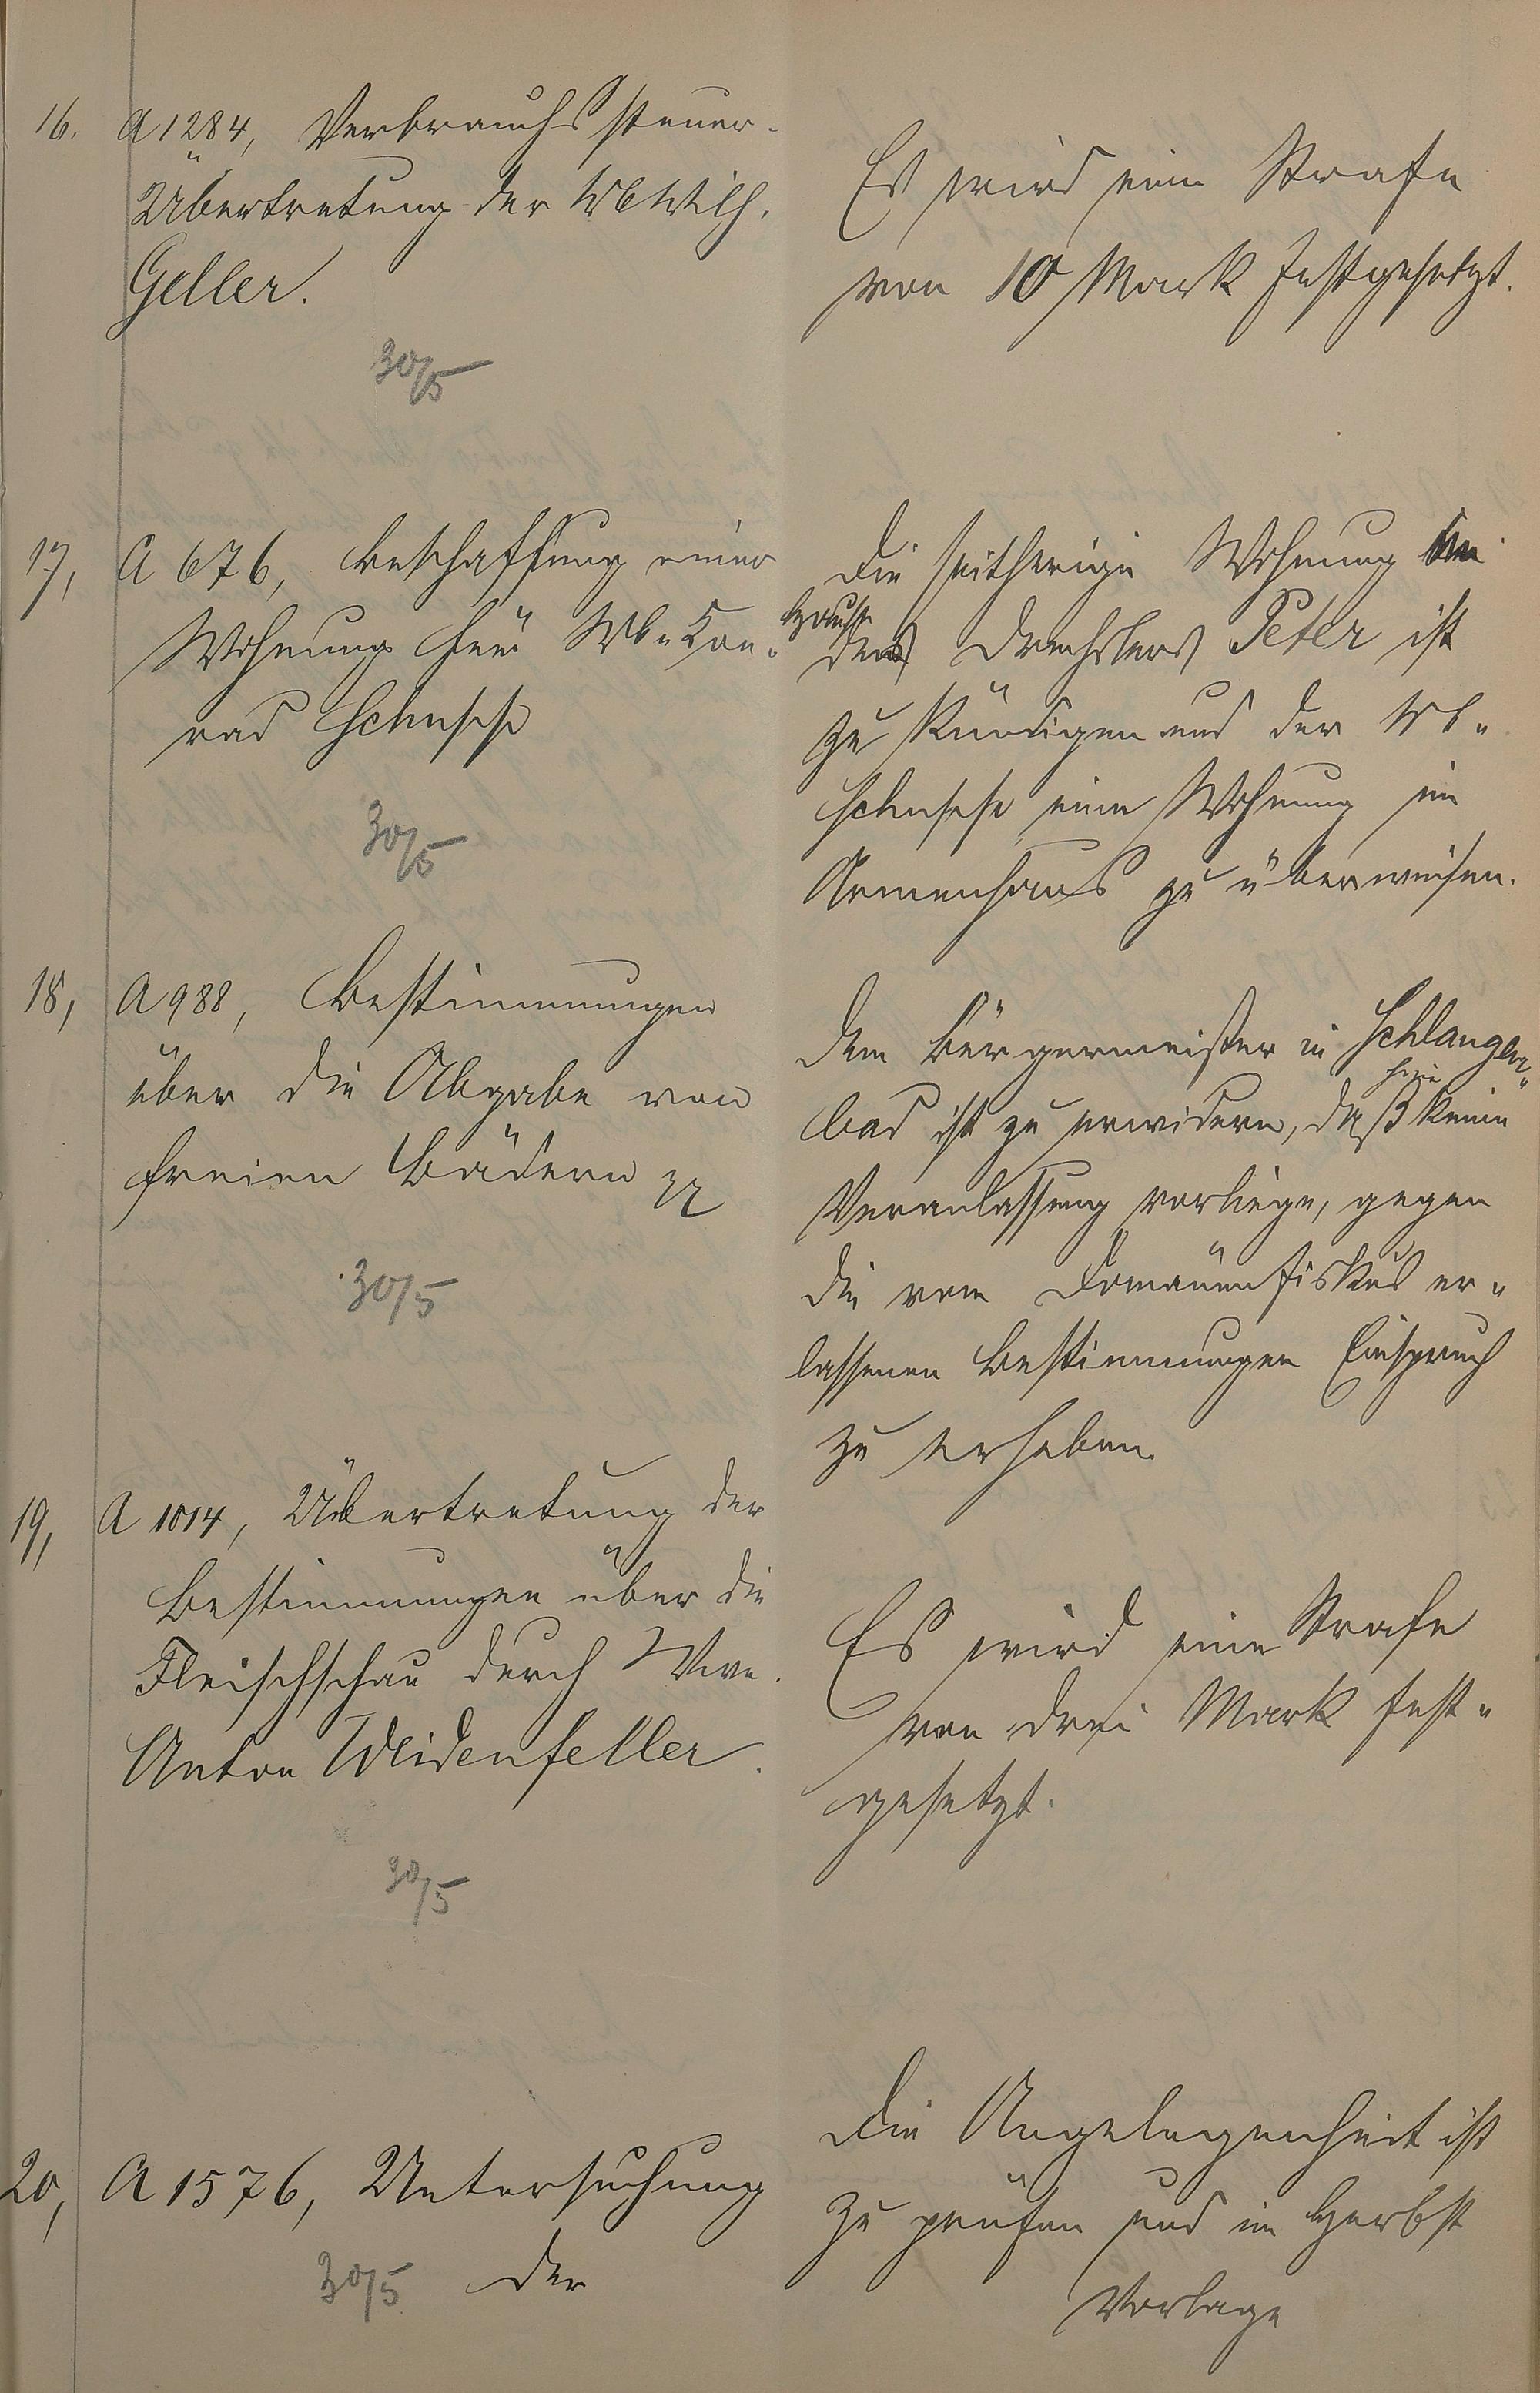 16. A 1284, Verbrauchssteuer-
Übertretung der Wb Wilh.
Geller.
30/5
Es wird eine Strafe
von 10 Mark festgesetzt.
17, A 676, Beschaffung einer
Wohnung für Wb. Con-
rad Schnepp
30/5
Die seitherige Wohnung im
Hause
des Drechslers Peter ist
zu kündigen und der Wb.
Schnepp eine Wohnung im
Armenhaus zu überweisen.
18, A 988, Bestimmungen
über die Abgabe von
freien Bädern pp
30/5
Dem Bürgermeister in Schlangen-
hier
bad ist zu erwidern, daß keine
Veranlassung vorliege, gegen
die vom Domänenfiskus er-
lassenen Bestimmungen Einspruch
zu erheben.
19, A 1014, Übertretung der
Bestimmungen über die
Fleischschau durch Wwe.
Anton Weidenfeller.
30/5
Es wird eine Strafe
von drei Mark fest-
gesetzt.
20, A 1576, Untersuchung
30/5 der
Die Angelegenheit ist
zu prüfen und im Herbst
Vorlage